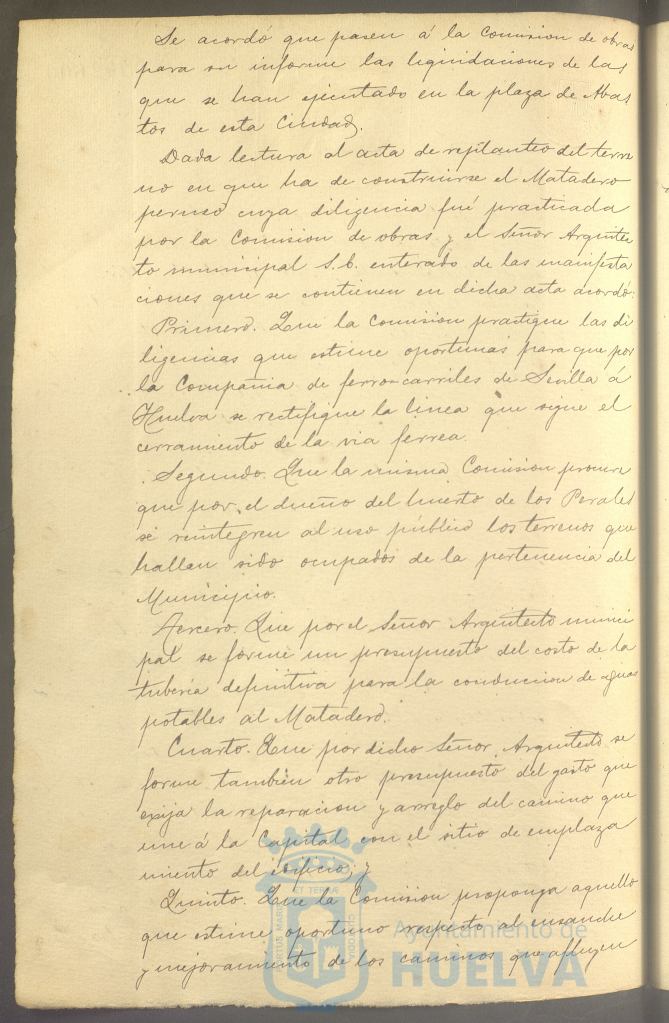 Se acordó que pasen á la Comision de obras
para su informe las liquidaciones de las
que se han ejecutado en la plaza de Abas
tos de esta Ciudad.
Dada lectura al acta de replanteo del terre
no en que ha de construirse el Matadero
peruso cuya diligencia fué practicada
por la Comision de obras y el Señor Arquitec
to municipal S.E. enterado de las manifesta
ciones que se contienen en dicha acta acordó:
Primero. Que la Comision practique las di
ligencias que estime oportunas para que por
la Compañia de ferro-carriles de Sevilla á
Huelva se rectifique la linea que sigue el
cerramiento de la via ferrea.
Segundo. Que la misma Comision procure
que por el dueño del huerto de los Perales
se reintegren al uso público los terrenos que
hallan sido ocupados de la pertenencia del
Municipio.
Tercero. Que por el Señor Arquitecto munici
pal se forme un presupuesto del costo de la
tuberia definitiva para la conduccion de aguas
potables al Matadero.
Cuarto. Que por dicho Señor Arquitecto se
forme también otro presupuesto del gasto que
exija la reparacion y arreglo del camino que
une á la Capital con el sitio de emplaza
miento del edificio; y
Quinto. Que la Comision proponga aquello
que estime oportuno respecto al ensanche
y mejoramiento de los caminos que afluyen
Ayuntamiento de
HUELVA